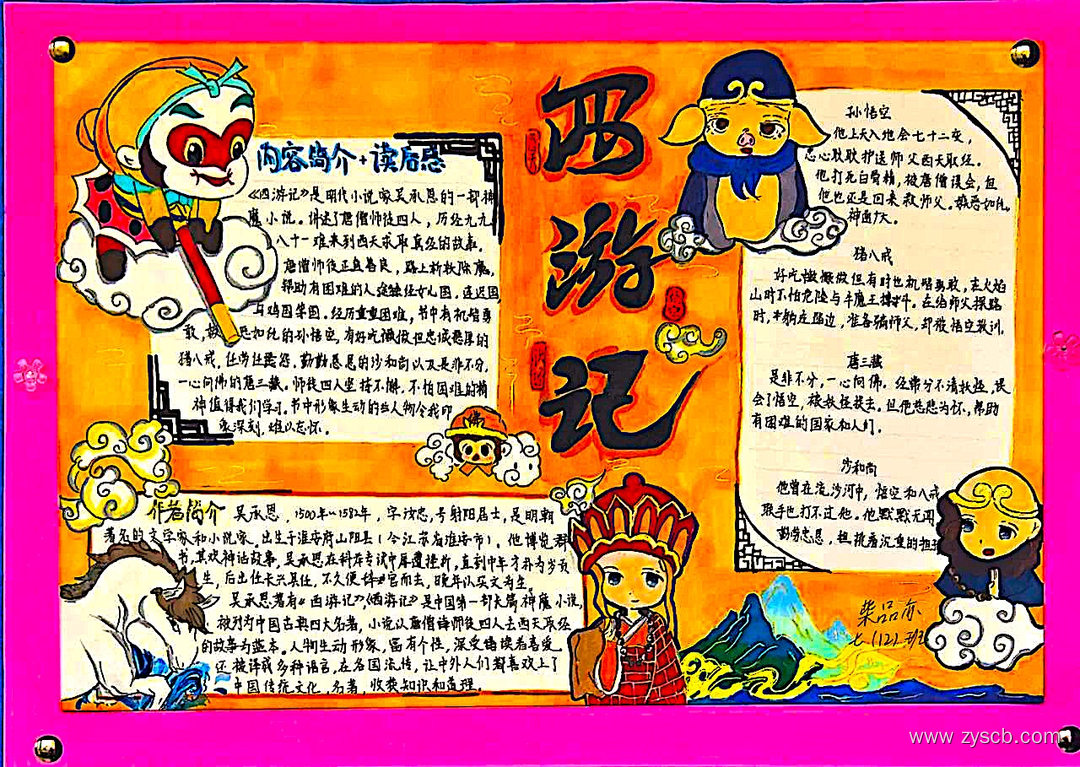 西游记
内容简介+读后感
《西游记》是明代小说家吴承恩的一部神
魔小说。讲述了唐僧师徒四人，历经九九
八十一难来到西天求取真经的故事。
唐僧师徒正直善良，路上斩妖除魔，
帮助有困难的人，途经女儿国、连迟国
乌鸡国等国，经历重重困难，书中有机智勇
敢，疾恶如仇的孙悟空，有好吃懒做但忠诚憨厚的
猪八戒，任劳任怨，勤勤恳恳的沙和尚以及是非不分，
一心向佛的唐三藏。师徒四人坚持不懈，不怕困难的精
神值得我们学习。书中形象生动的人物令我印
象深刻，难以忘怀。
作者简介
吴承恩，1500年~1582年，字汝忠，号射阳居士，是明朝
著名的文学家和小说家。出生于淮安府山阳县（今江苏省淮安市）。他博览群
书，其欢神话故事。吴承恩在科举考试中屡遭挫折，直到中年才补为岁贡
生，后出任长兴县丞，不久便休官而去，晚年以卖文为生。
吴承恩著有《西游记》，《西游记》是中国第一部长篇神魔小说，
被列为中国古典四大名著，小说以唐僧师徒四人去西天取经
的故事为蓝本。人物生动形象，富有个性，深受读者喜爱
还被译成多种语言，在各国流传，让中外人们都喜欢上了
中国传统文化、名著，收获知识和道理。
孙悟空
他上天入地会七十二变，
忠心耿耿护送师父西天取经。
他打死白骨精，被唐僧误会，但
他也还是回来救师父。嫉恶如仇，
神通广大。
猪八戒
好吃懒做但有时也机智勇敢，在火焰
山时不怕危险与牛魔王搏斗。在给师父探路
时，半躺在路边，准备骗师父，却被悟空教训。
唐三藏
是非不分，一心向佛。经常分不清妖怪，误
会了悟空，被妖怪抓去。但他慈悲为怀，帮助
有困难的国家和人们。
沙和尚
他曾在流沙河中，悟空和八戒
联手也打不过他。他默默无闻
勤劳忠恳，担挑着沉重的担子
柴品亦
七（12）班
www.zyscb.com